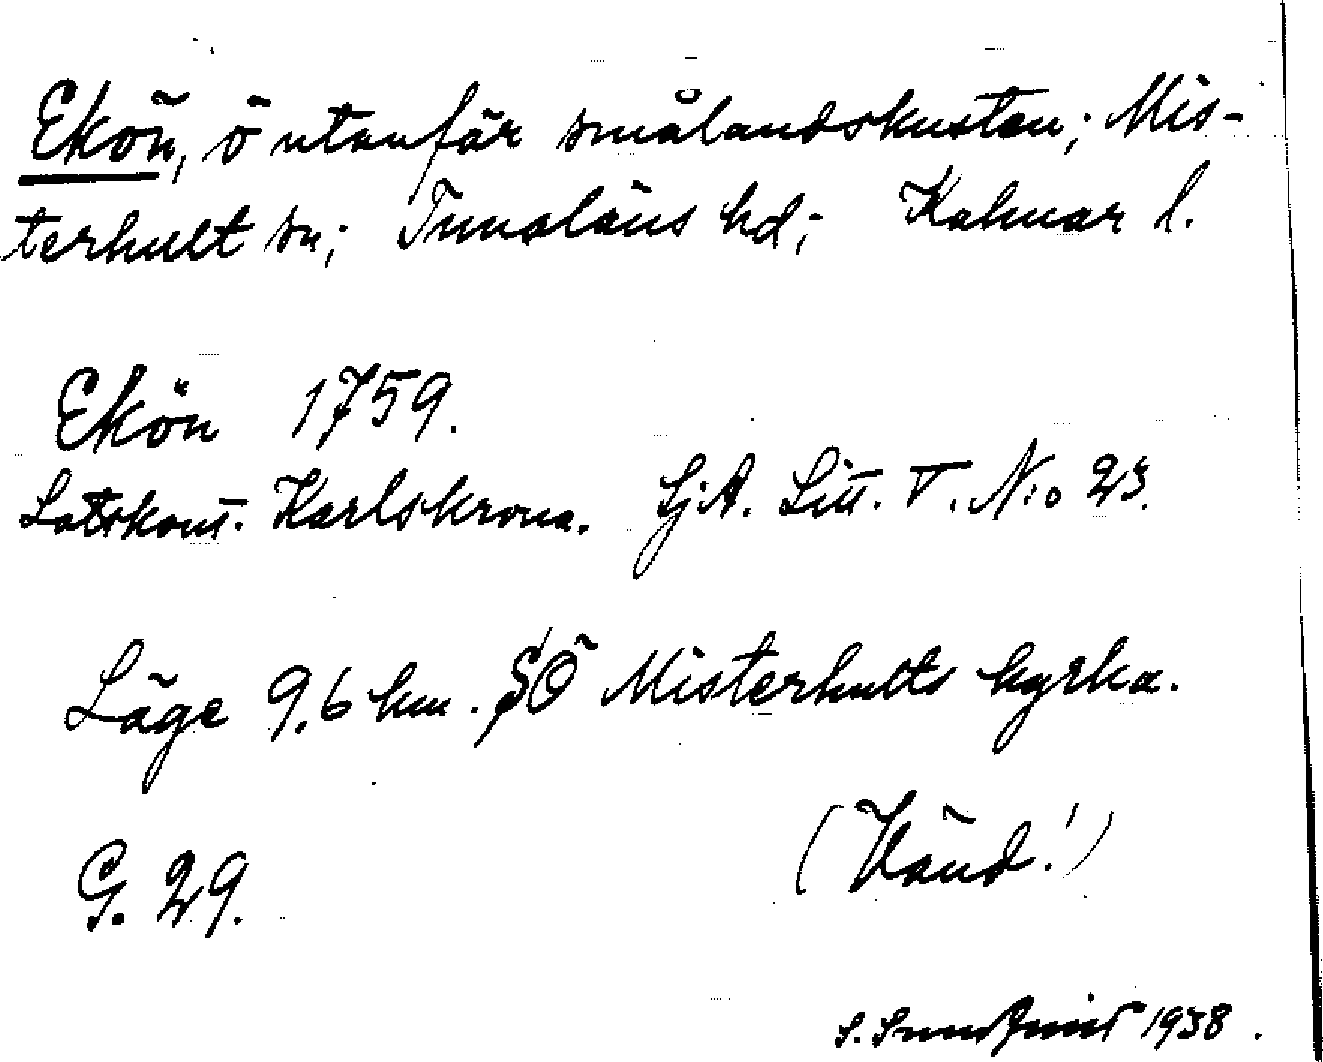 Ekön, ö utanför smålandskusten; Mis-
terhult sn; Tunaläns hd; Kalmar l.
Ekön 1759.
Lotskont. Karlskrona. Sj.A. Litt. V. No 23.
Läge 9,6 km. SÖ Misterhults kyrka.
G. 29. (Vänd!)
S. 1938.